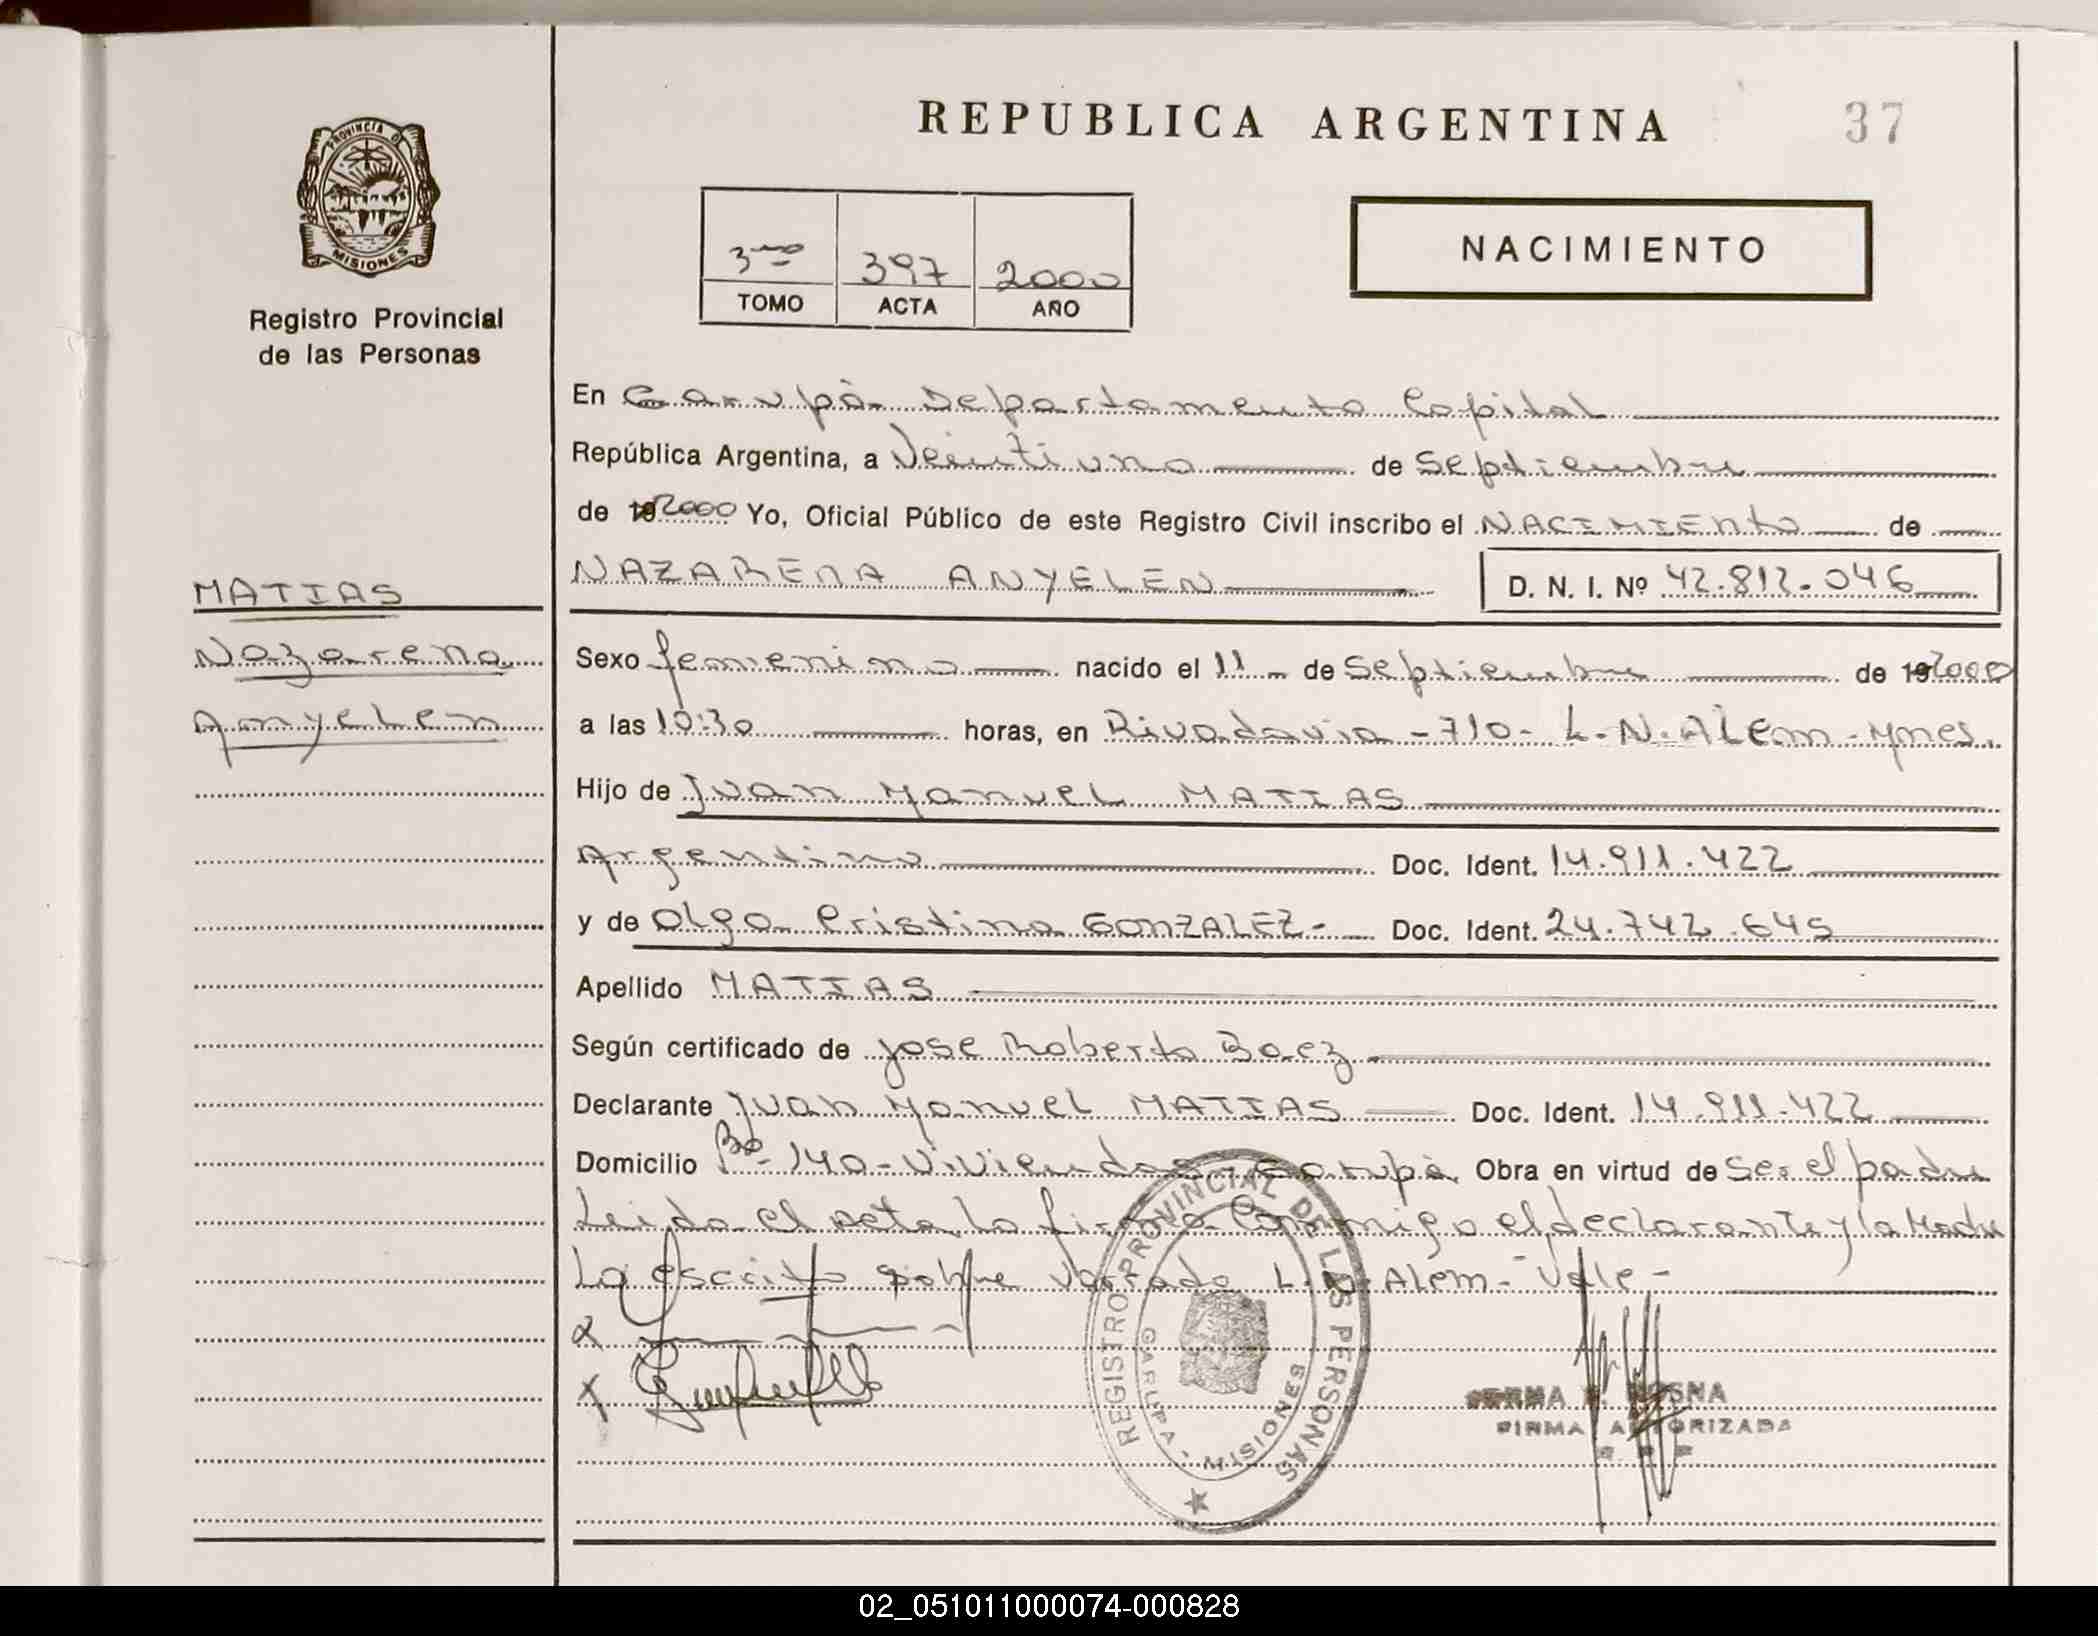 REPUBLICA ARGENTINA
37
PROVINCIA DE
MISIONES
Registro Provincial
de las Personas
3ro 397 2000
TOMO ACTA AÑO
NACIMIENTO
En Garupá Departamento Capital
República Argentina, a Veintiuno de Septiembre
de 192000 Yo, Oficial Público de este Registro Civil inscribo el NACIMIENTO de
NAZARENA ANYELEN D. N. I. Nº 42.812.046
MATIAS
Nazarena
Anyelen
Sexo femenino nacido el 11 de Septiembre de 192000
a las 10:30 horas, en Rivadavia -710- L.N.Alem-Mnes.
Hijo de Juan Manuel MATIAS
Argentino Doc. Ident. 14.911.422
y de Olga Cristina GONZALEZ- Doc. Ident. 24.742.645
Apellido MATIAS
Según certificado de Jose Roberto Baez
Declarante Juan Manuel MATIAS Doc. Ident. 14.911.422
Domicilio Bº-140-Viviendas-Garupá Obra en virtud de Ser el padre
Leida el acta la firma conmigo el declarante y la Madre
Lo escrito sobre borrado L.N.Alem-Vale-
REGISTRO PROVINCIAL DE LAS PERSONAS
GARUPA - MISIONES
NORMA
FIRMA AUTORIZADA
02_051011000074-000828